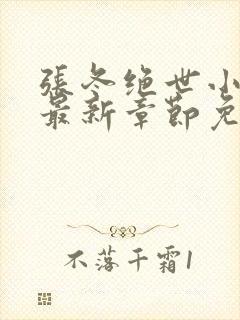 張冬绝世小
最新章節免
不落千霜1